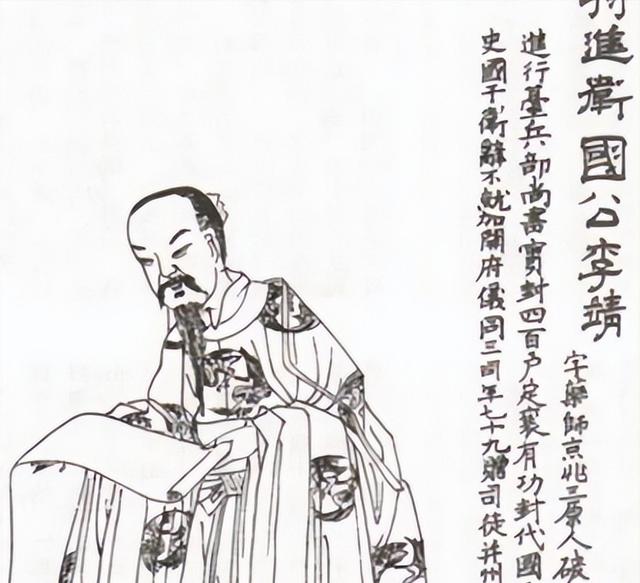 進衛國公李靖
字藥師京兆三原人破
進行臺兵部尚書實封四百戶定襄有功封代國
史國于衛辭不就加開府儀同三司年七十九贈司徒并州